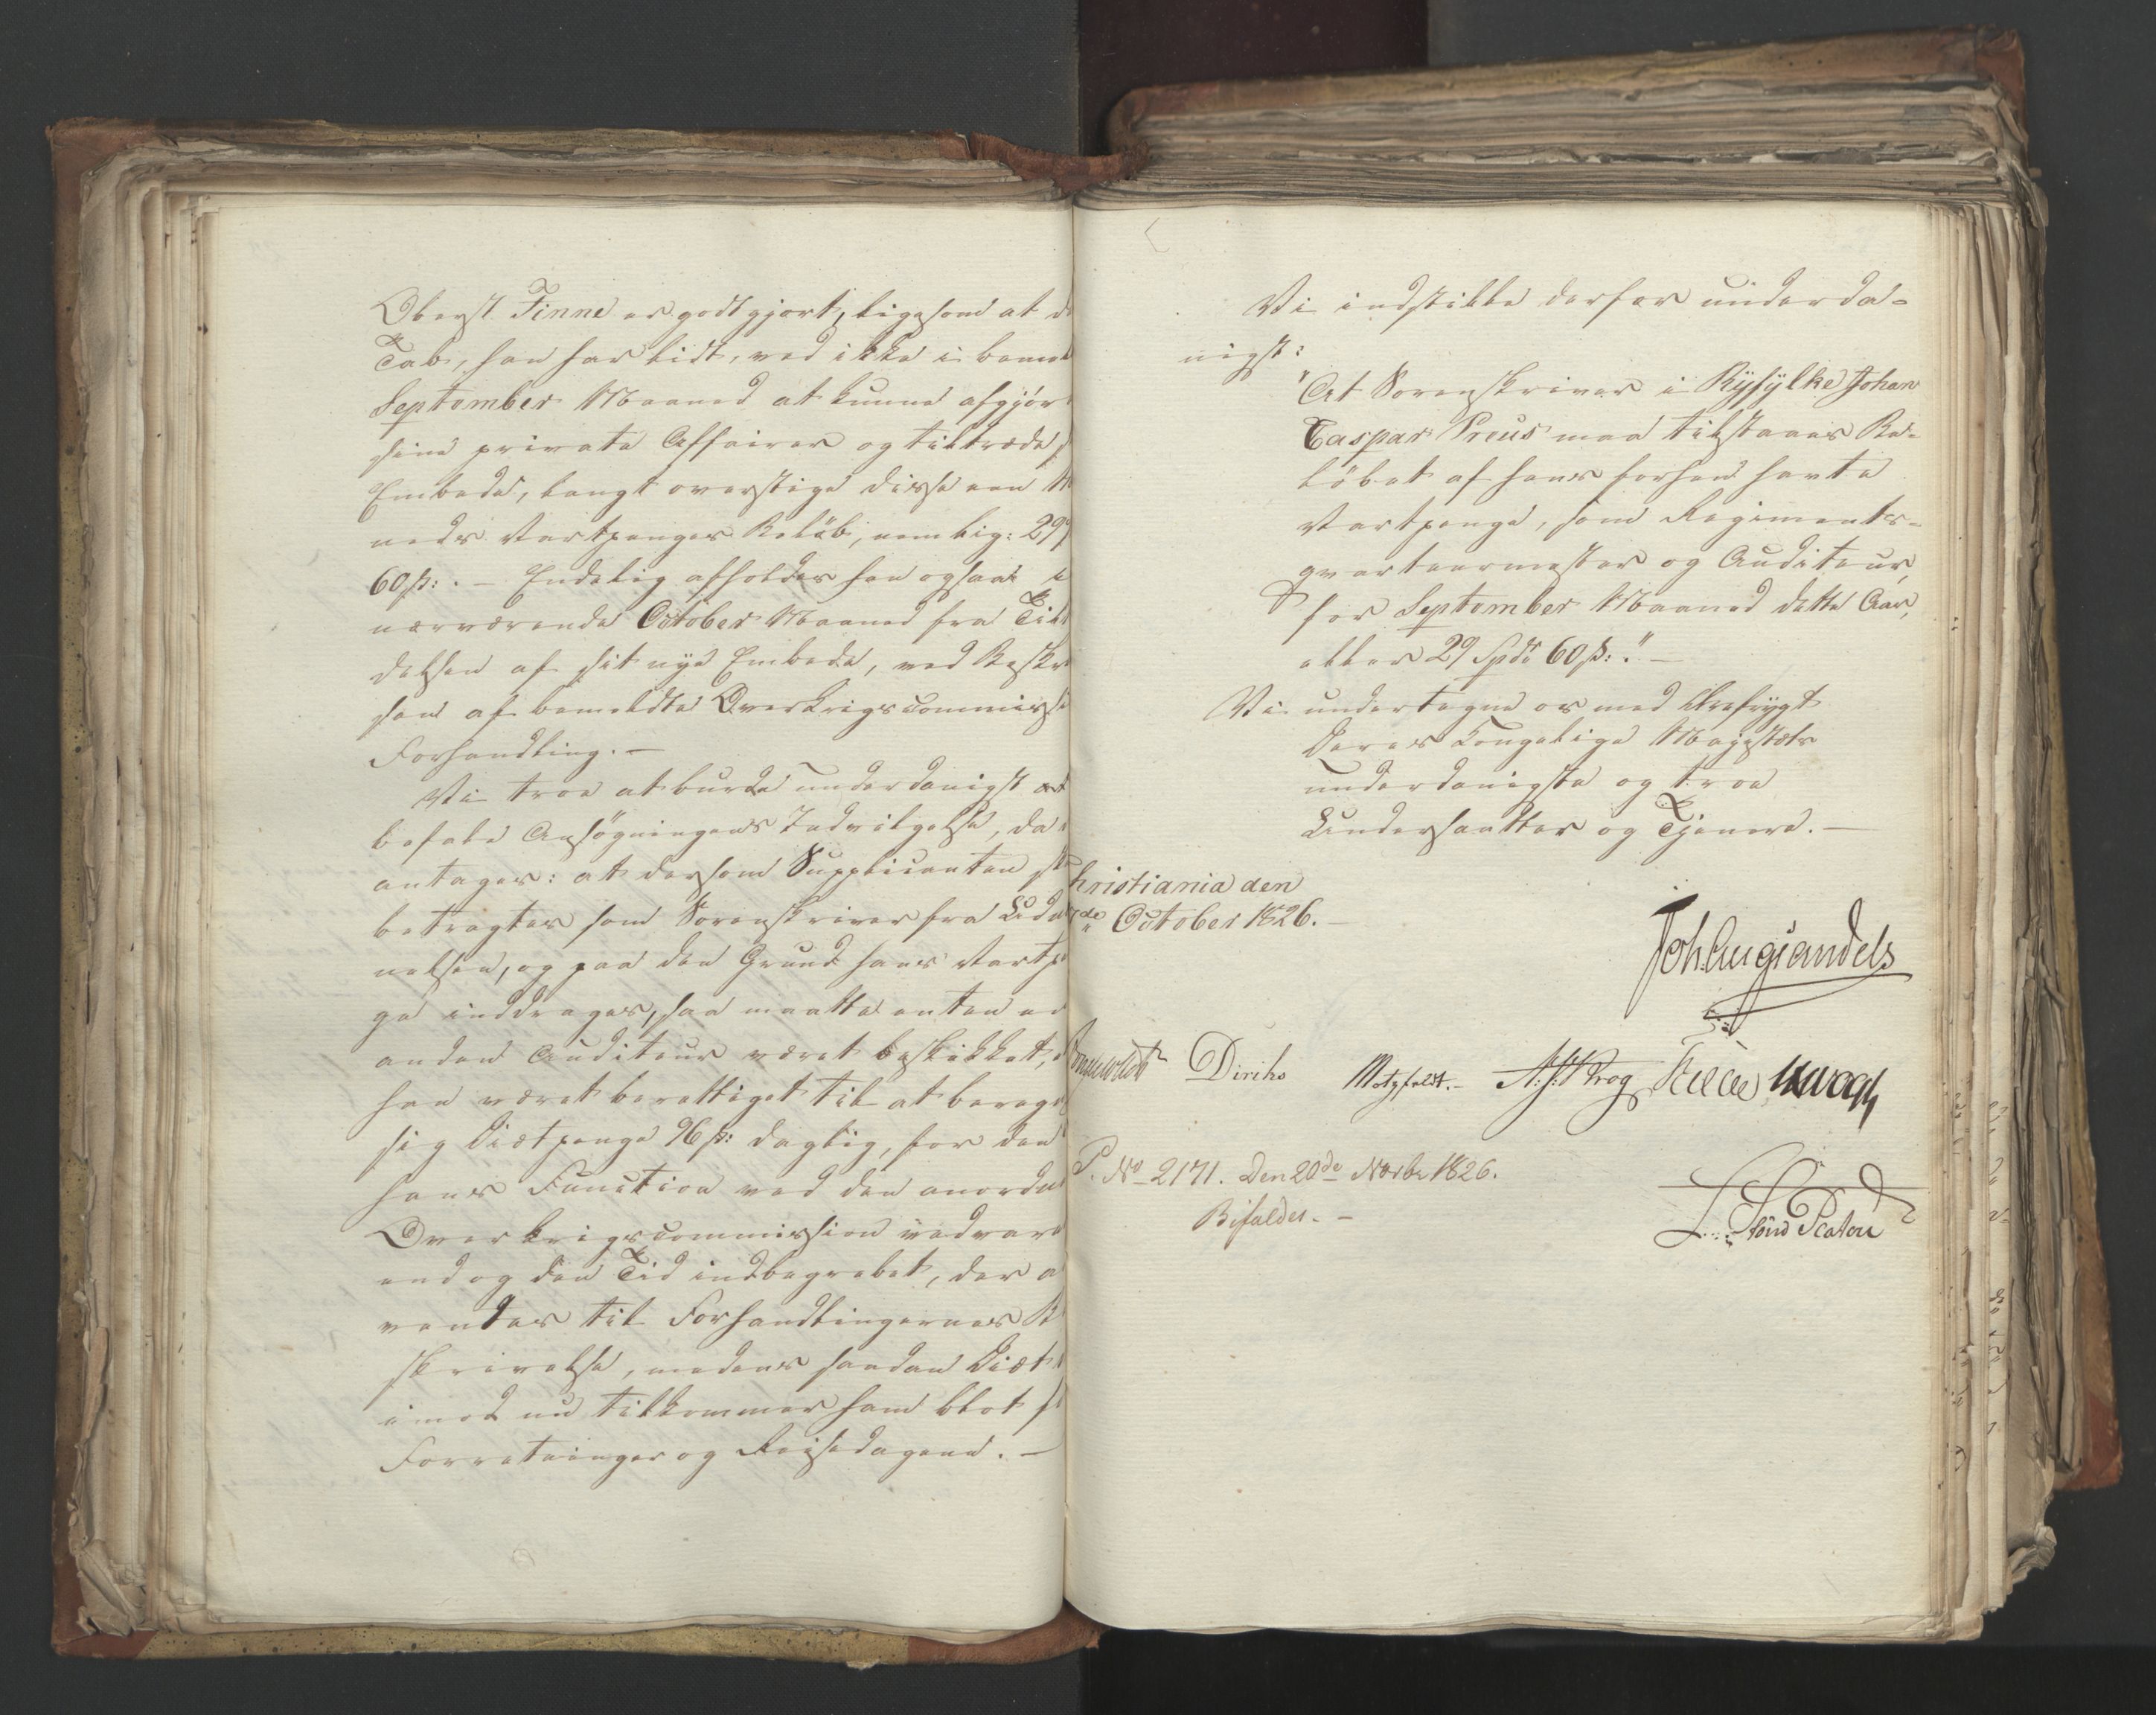 Oberst Finne er godtgjort, ligesom at d
Tab, han har lidt, ved ikke i bemel
September Maaned at kunne afgjør
sine private Affairer og tiltræde s
Embede, langt overstige disse een M
neds Vartpenges Beløb, nemlig: 29
60 ß: . — Endelig afholdes han ogsaa i
nærværende October Maaned fra Tilt
delsen af sit nye Embede, ved Beskr
sen af bemeldte Overkrigscommissi
Forhandling. —
Vi troe at burde underdanigst an
befale Ansøgningens Indvilgelse, da
antages: at dersom Supplicanten sk
betragtes som Sorenskriver fra Ud
nelsen, og paa den Grund hans Vartp
ge inddrages, saa maatte enten en
anden Auditeur været beskikket,
han været berettiget til at berege
sig Diætpenge 96 ß: daglig, for den
hans Function ved den anordn
Overkrigscommission vedvare
end og den Tid indbegrebet, der a
vendes til Forhandlingernes B
skrivelse, medens saadan Diæt
imod nu tilkommer ham blot f
Forretninger og Reisedagene. —
Vi indstille derfor underda-
nigst:
"At Sorenskriver i Ryfylke Johan
Caspar Preus maa tilstaaes Be-
løbet af hans forhen havte
Vartpenge, som Regiments-
qvarteermester og Auditeur,
for September Maaned dette Aar,
eller 29 Spd 60 ß: ." —
Vi undertegne os med Ærefrygt
Deres Kongelige Majestæts
underdanigste og troe
Undersaatter og Tjenere. —
hristiania den
de October 1826. —
Joh. Aug. Sandels
Diriks Motzfeldt. — Krog
P. No 2171. Den 20de Novbr 1826.
Bifaldes. —
Platou